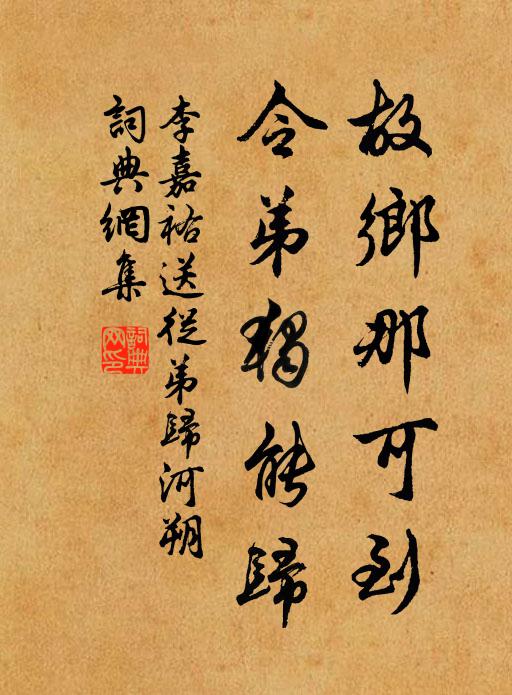 故鄉那可到
令弟獨能歸
李嘉祐送從弟歸河朔
詞典網集
詞典網印